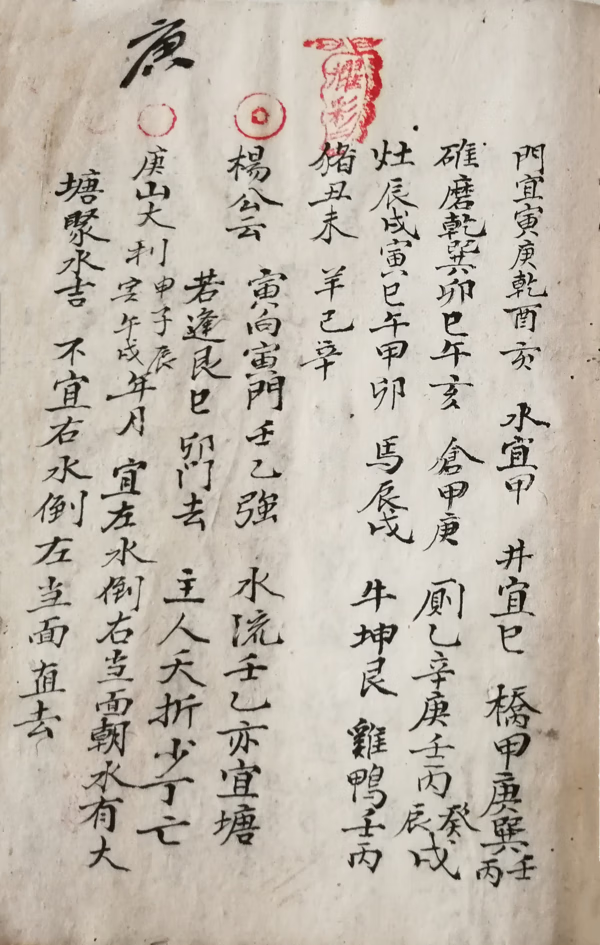 門宜寅庚乾酉亥　水宜甲　井宜巳　橋甲庚巽壬丙
碓磨乾巽卯巳午亥　倉甲庚　厠乙辛庚壬丙癸辰戌
灶辰戌寅巳午甲卯　馬辰戌　牛坤艮　雞鴨壬丙
猪丑未　羊己辛
楊公云　寅向寅門壬乙強　水流壬乙亦宜塘
若逢艮巳卯門去　主人夭折少丁亡
庚
庚山大利甲子辰寅午戌年月　宜左水倒右当面朝水有大
塘聚水吉　不宜右水倒左当面直去